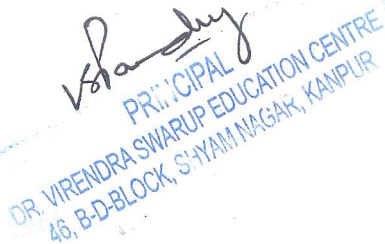 PRINCIPAL
DR. VIRENDRA SWARUP EDUCATION CENTRE
46, B-D-BLOCK, SHYAM NAGAR, KANPUR